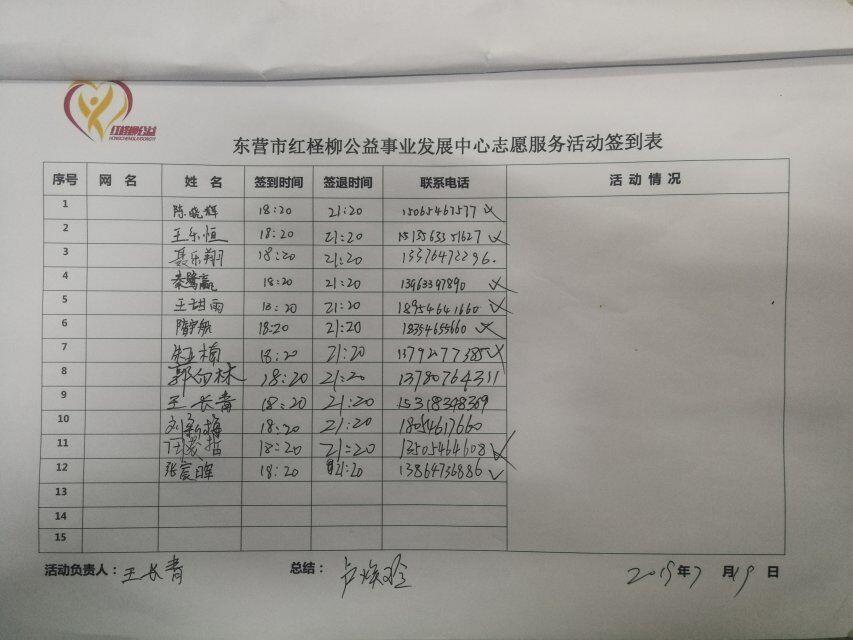 红柽柳公益
HONGCHENGLIUGONGYI
东营市红柽柳公益事业发展中心志愿服务活动签到表
序号 网名 姓名 签到时间 签退时间 联系电话 活动情况
1 陈晓辉 18:20 21:20 15065467577
2 王乐恒 18:20 21:20
3 聂乐翔 18:20 21:20 13376472296.
4 18:20 21:20 13963397890
5 王甜雨 18:20 21:20 18954641660
6 18:20 21:20 18354655660
7 18:20 21:20 13792777385
8 郭向林 18:20 21:20 13780764311
9 王长青 18:20 21:20 15318348309
10 刘新梅 18:20 21:20 18054617660
11 18:20 21:20 13505464608
12 张宸晖 18:20 21:20 13864736886
13
14
15
活动负责人：王长青 总结： 年7月19日